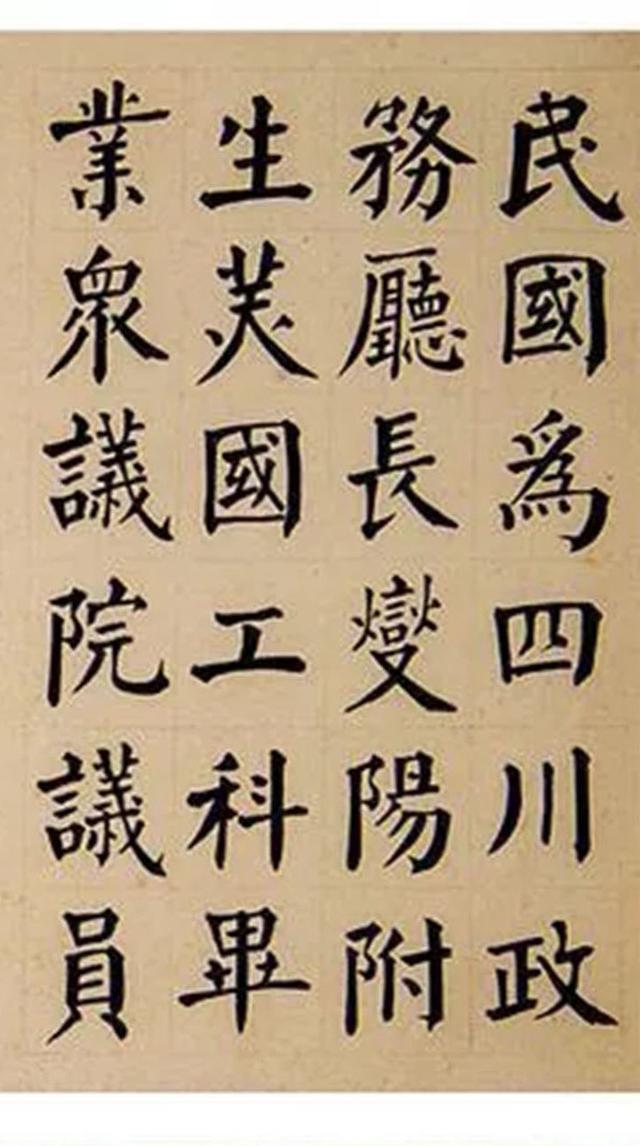 民國爲四川政
務廳長燮陽附
生美國工科畢
業衆議院議員